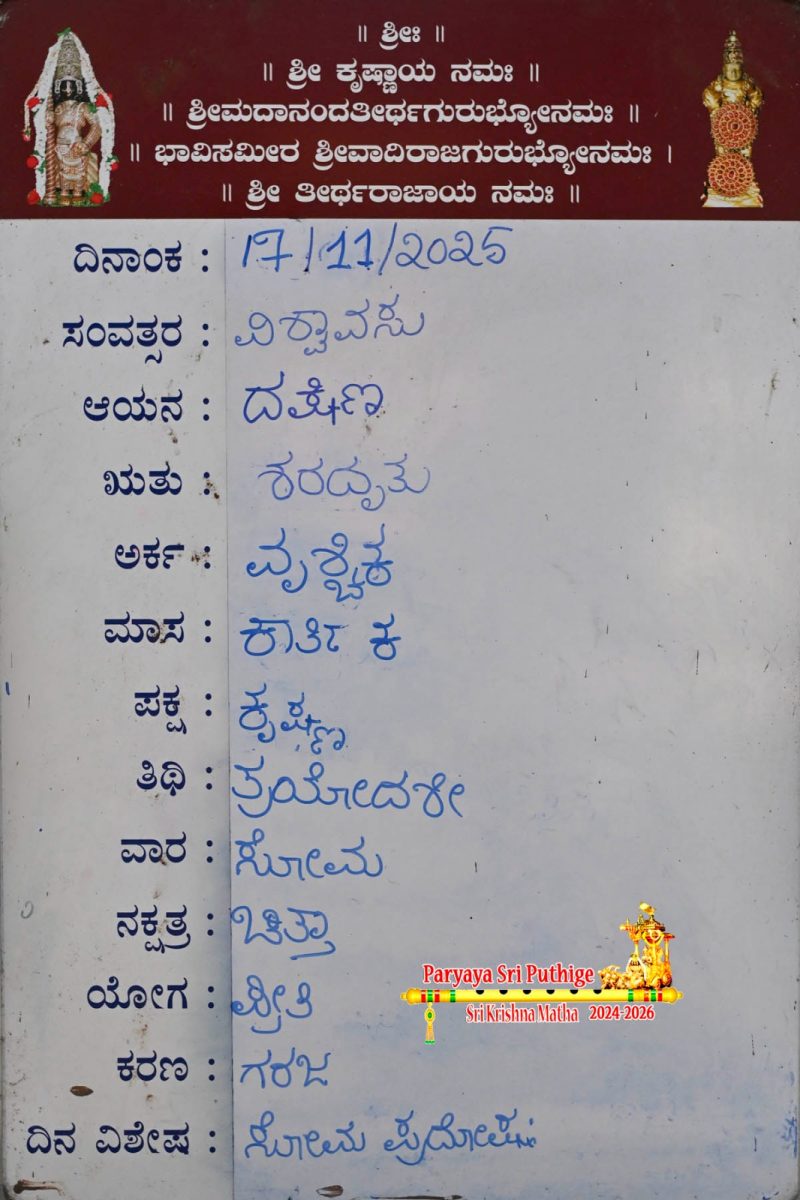 ॥ ಶ್ರೀಃ ॥
॥ ಶ್ರೀ ಕೃಷ್ಣಾಯ ನಮಃ ॥
॥ ಶ್ರೀಮದಾನಂದತೀರ್ಥಗುರುಭ್ಯೋನಮಃ ॥
॥ ಭಾವಿಸಮೀರ ಶ್ರೀವಾದಿರಾಜಗುರುಭ್ಯೋನಮಃ ।
॥ ಶ್ರೀ ತೀರ್ಥರಾಜಾಯ ನಮಃ ॥
ದಿನಾಂಕ : 17/11/2025
ಸಂವತ್ಸರ : ವಿಶ್ವಾವಸು
ಆಯನ : ದಕ್ಷಿಣ
ಋತು : ಶರದೃತು
ಅರ್ಕ : ವೃಶ್ಚಿಕ
ಮಾಸ : ಕಾರ್ತಿಕ
ಪಕ್ಷ : ಕೃಷ್ಣ
ತಿಥಿ : ತ್ರಯೋದಶೀ
ವಾರ : ಸೋಮ
ನಕ್ಷತ್ರ : ಚಿತ್ತಾ
ಯೋಗ : ಪ್ರೀತಿ
ಕರಣ : ಗರಜ
ದಿನ ವಿಶೇಷ : ಸೋಮ ಪ್ರದೋಷಃ
Paryaya Sri Puthige
Sri Krishna Matha 2024-2026